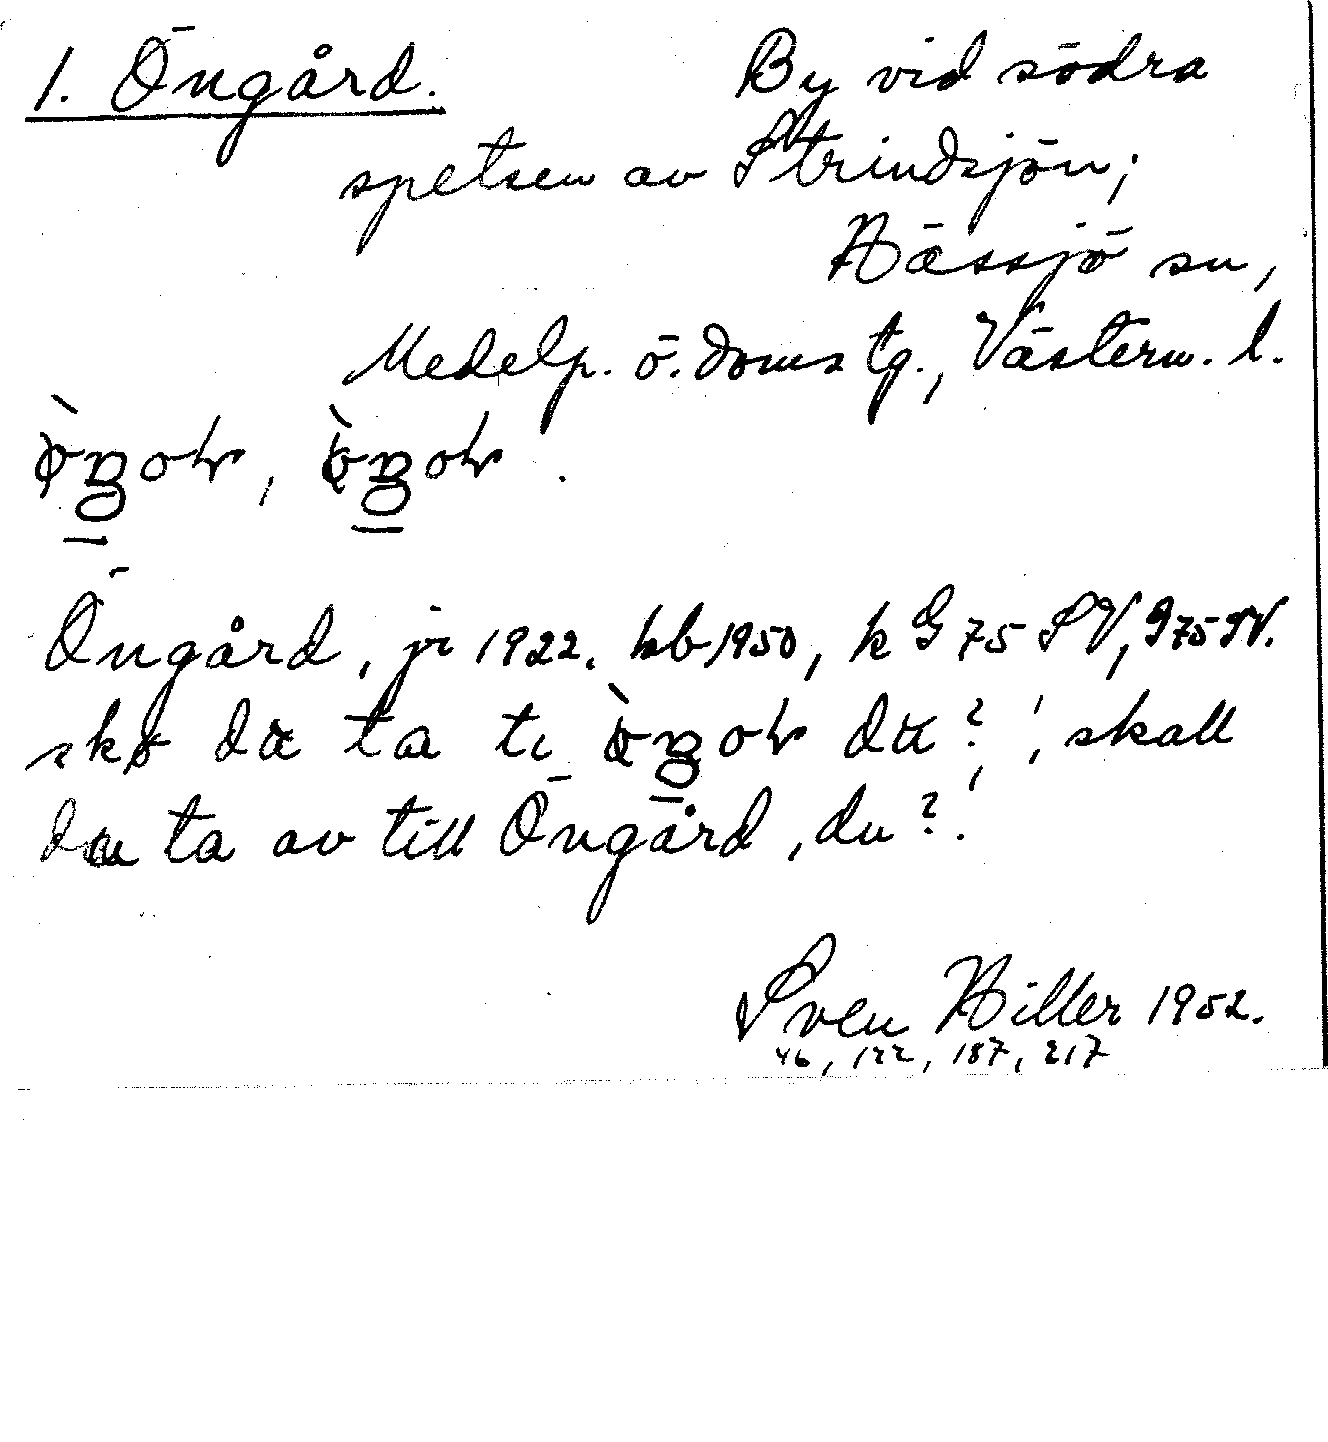 1. Öngård. By vid södra
spetsen av Strindsjön;
Hässjö sn,
Medelp. ö. doms tg., Västern. l.
Öngård, jr 1922. hb 1950, k G 75 SV, 975 SV.
ta ti
skall
du ta av till Öngård, du?'.
Sven Hiller 1952.
46, 122, 187, 217